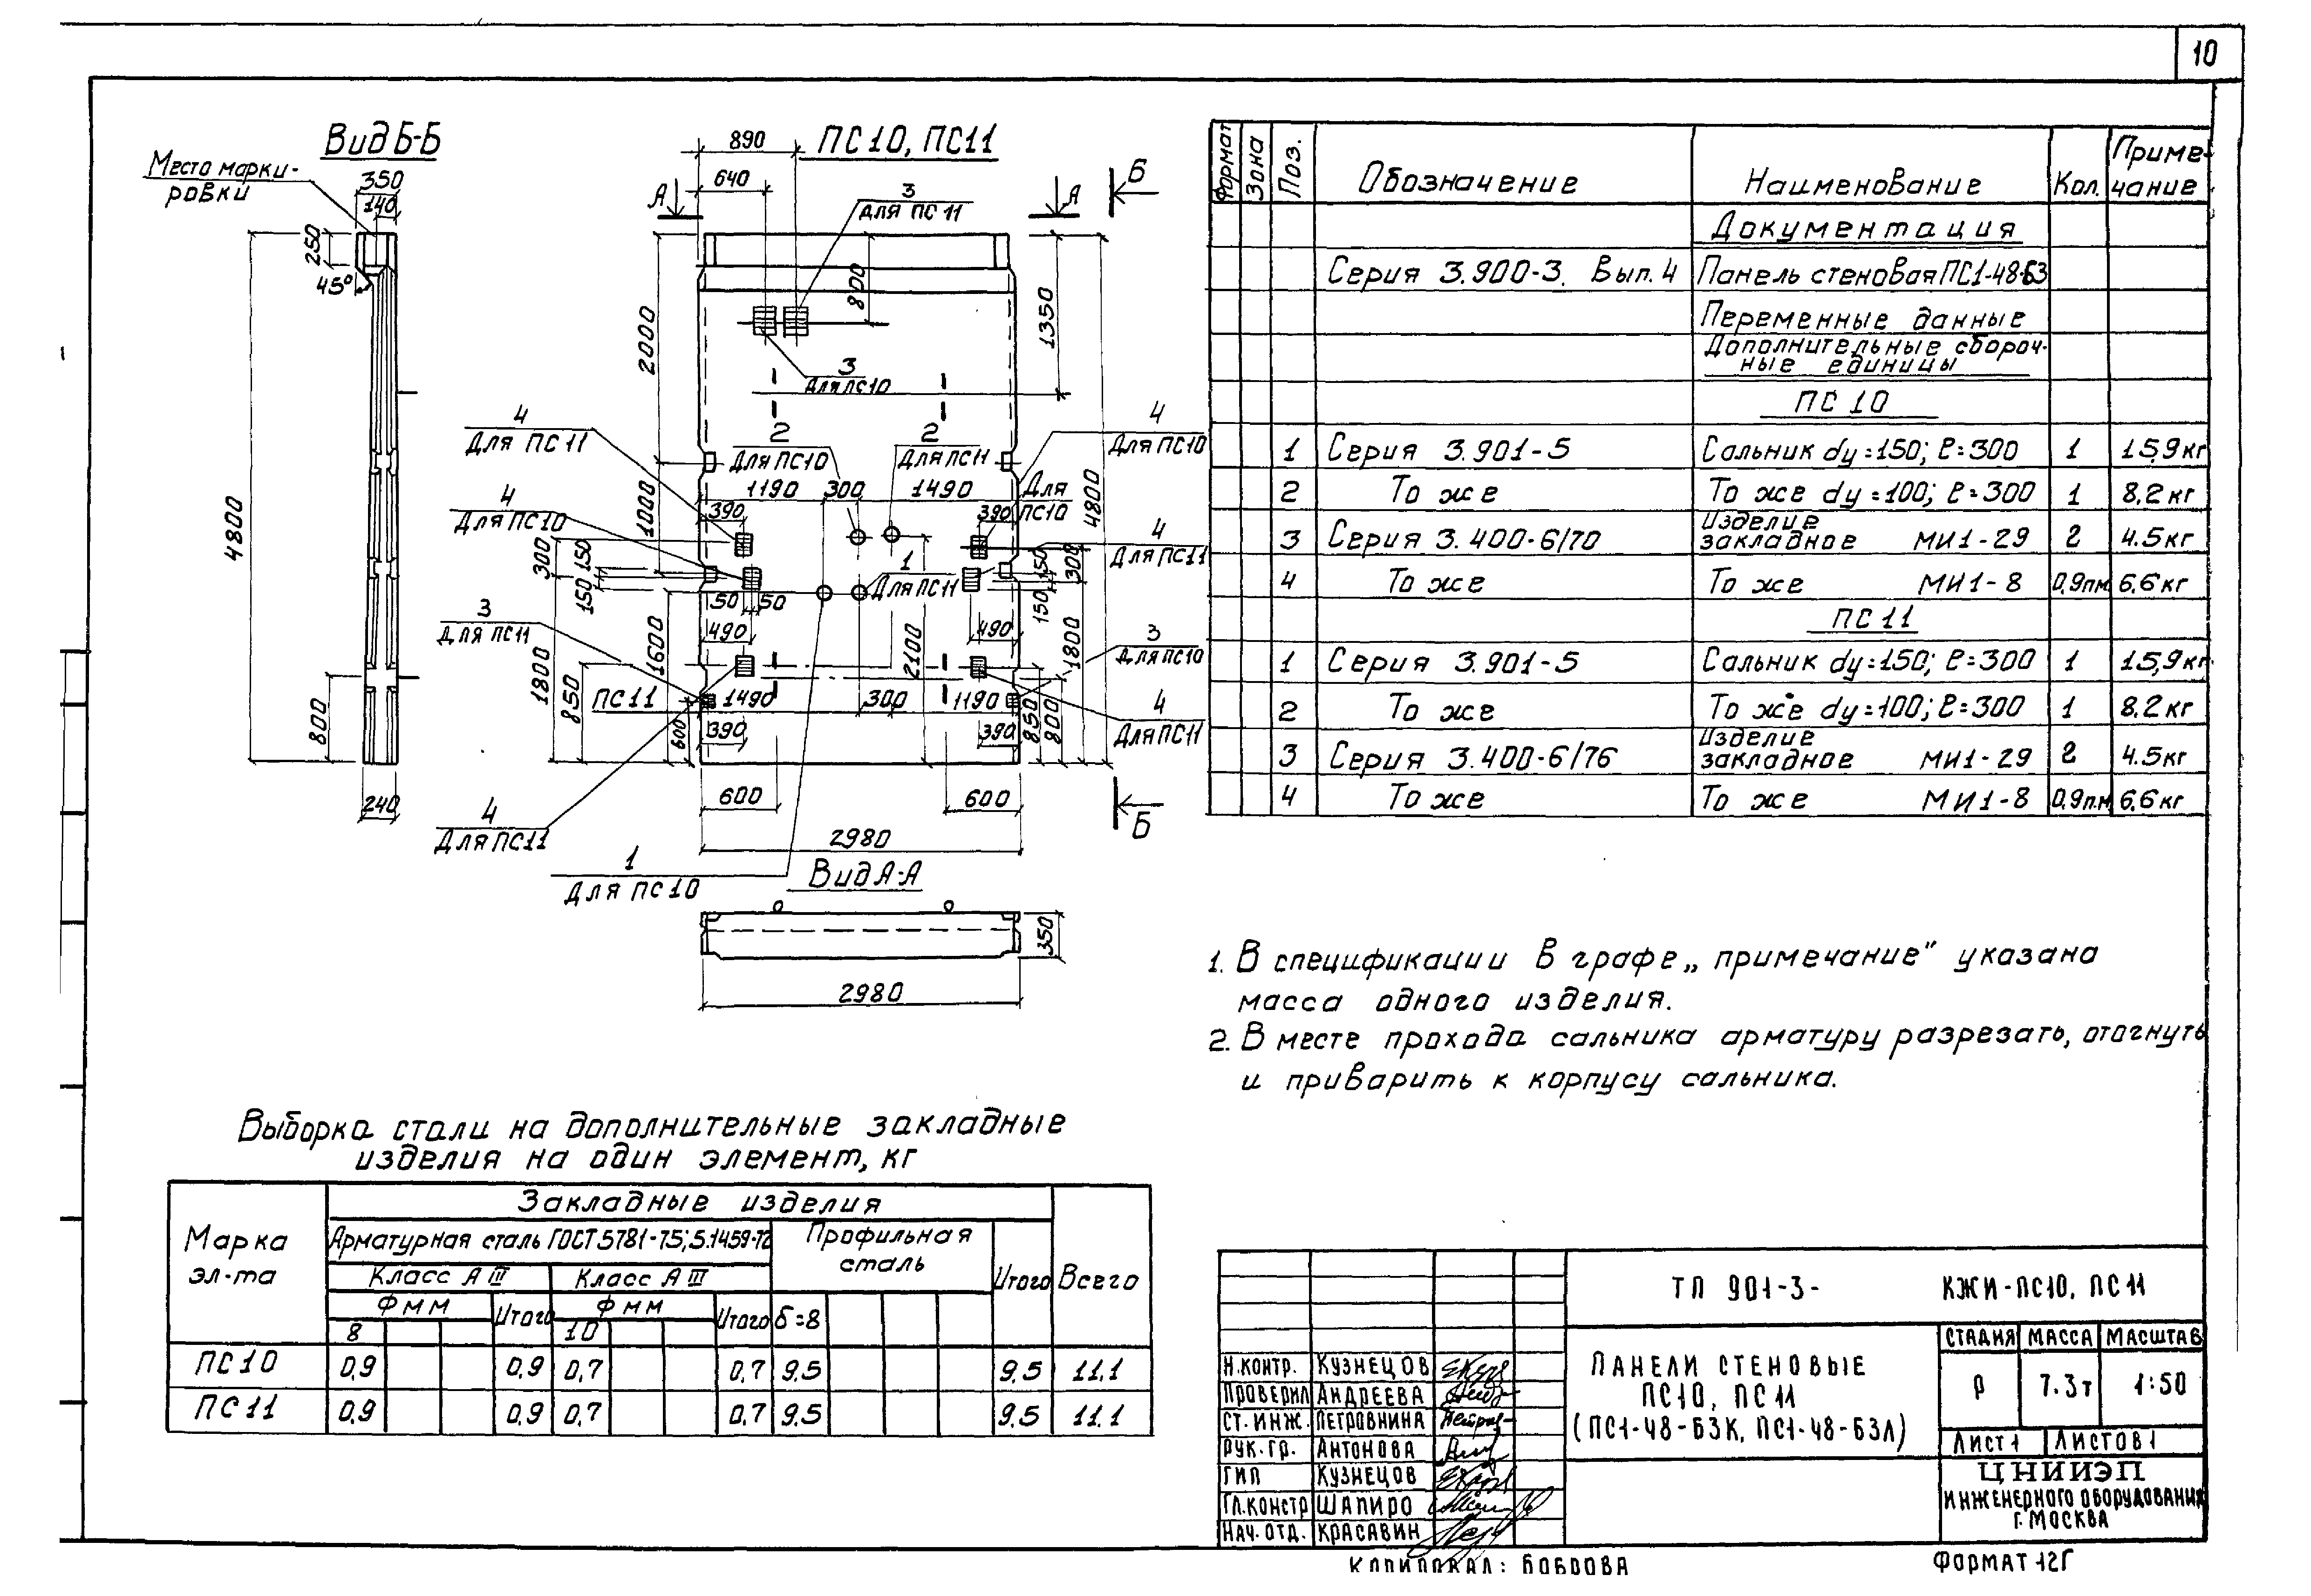 10
Вид Б-Б
Место марки-
ровки
350
140
250
45°
4800
800
240
ПС10, ПС11
890
640
А
А
Б
3
Для ПС11
800
1350
2000
3
Для ПС10
4
Для ПС11
2
Для ПС10
2
Для ПС11
4
Для ПС10
1190 300 1490 Для
ПС10
4800
1000
390
390
4
Для ПС10
4
Для ПС11
300
150
150
1
Для ПС11
150
300
150
50 50
490
490
3
Для ПС11
3
Для ПС10
1800
850
1600
2100
1800
ПС11 1490 300 1190
600
850
800
390
390
4
Для ПС11
4
Для ПС11
600
600
Б
2980
1
Для ПС10
Вид А-А
350
2980
Формат Зона Поз. Обозначение Наименование Кол. Приме-
чание
Документация
Серия 3.900-3. Вып. 4 Панель стеновая ПС1-48-Б3
Переменные данные
Дополнительные сбороч-
ные единицы
ПС 10
1 Серия 3.901-5 Сальник dy=150; ℓ=300 1 15,9 кг
2 То же То же dy=100; ℓ=300 1 8.2 кг
3 Серия 3.400-6/70 Изделие закладное МИ1-29 2 4.5 кг
4 То же То же МИ1-8 0,9п.м 6.6 кг
ПС 11
1 Серия 3.901-5 Сальник dy=150; ℓ=300 1 15,9 кг
2 То же То же dy=100; ℓ=300 1 8.2 кг
3 Серия 3.400-6/76 Изделие закладное МИ1-29 2 4.5 кг
4 То же То же МИ1-8 0,9п.м 6.6 кг
1. В спецификации в графе „примечание" указана
масса одного изделия.
2. В месте прохода сальника арматуру разрезать, отогнуть
и приварить к корпусу сальника.
Выборка стали на дополнительные закладные
изделия на один элемент, кг
Марка
эл-та
Закладные изделия
Арматурная сталь ГОСТ 5781-75; 5.1459-72
Профильная
сталь
Итого Всего
Класс А III Класс А III
Ф мм Итого Ф мм Итого δ=8
8 10
ПС10 0,9 0,9 0,7 0,7 9.5 9,5 11.1
ПС11 0,9 0,9 0,7 0,7 9.5 9,5 11.1
ТП 901-3- КЖИ-ПС10, ПС11
СТАДИЯ МАССА МАСШТАБ
Р 7.3т 1:50
ПАНЕЛИ СТЕНОВЫЕ
ПС10, ПС11
(ПС1-48-Б3К, ПС1-48-Б3Л)
ЛИСТ 1 ЛИСТОВ 1
Н.КОНТР. КУЗНЕЦОВ
ПРОВЕРИЛ АНДРЕЕВА
СТ.ИНЖ. ПЕТРОВНИНА
РУК.ГР. АНТОНОВА
ГИП КУЗНЕЦОВ
ГЛ.КОНСТР ШАПИРО
НАЧ.ОТД. КРАСАВИН
ЦНИИЭП
ИНЖЕНЕРНОГО ОБОРУДОВАНИЯ
Г.МОСКВА
КОПИРОВАЛ: БОБРОВА
ФОРМАТ 12Г